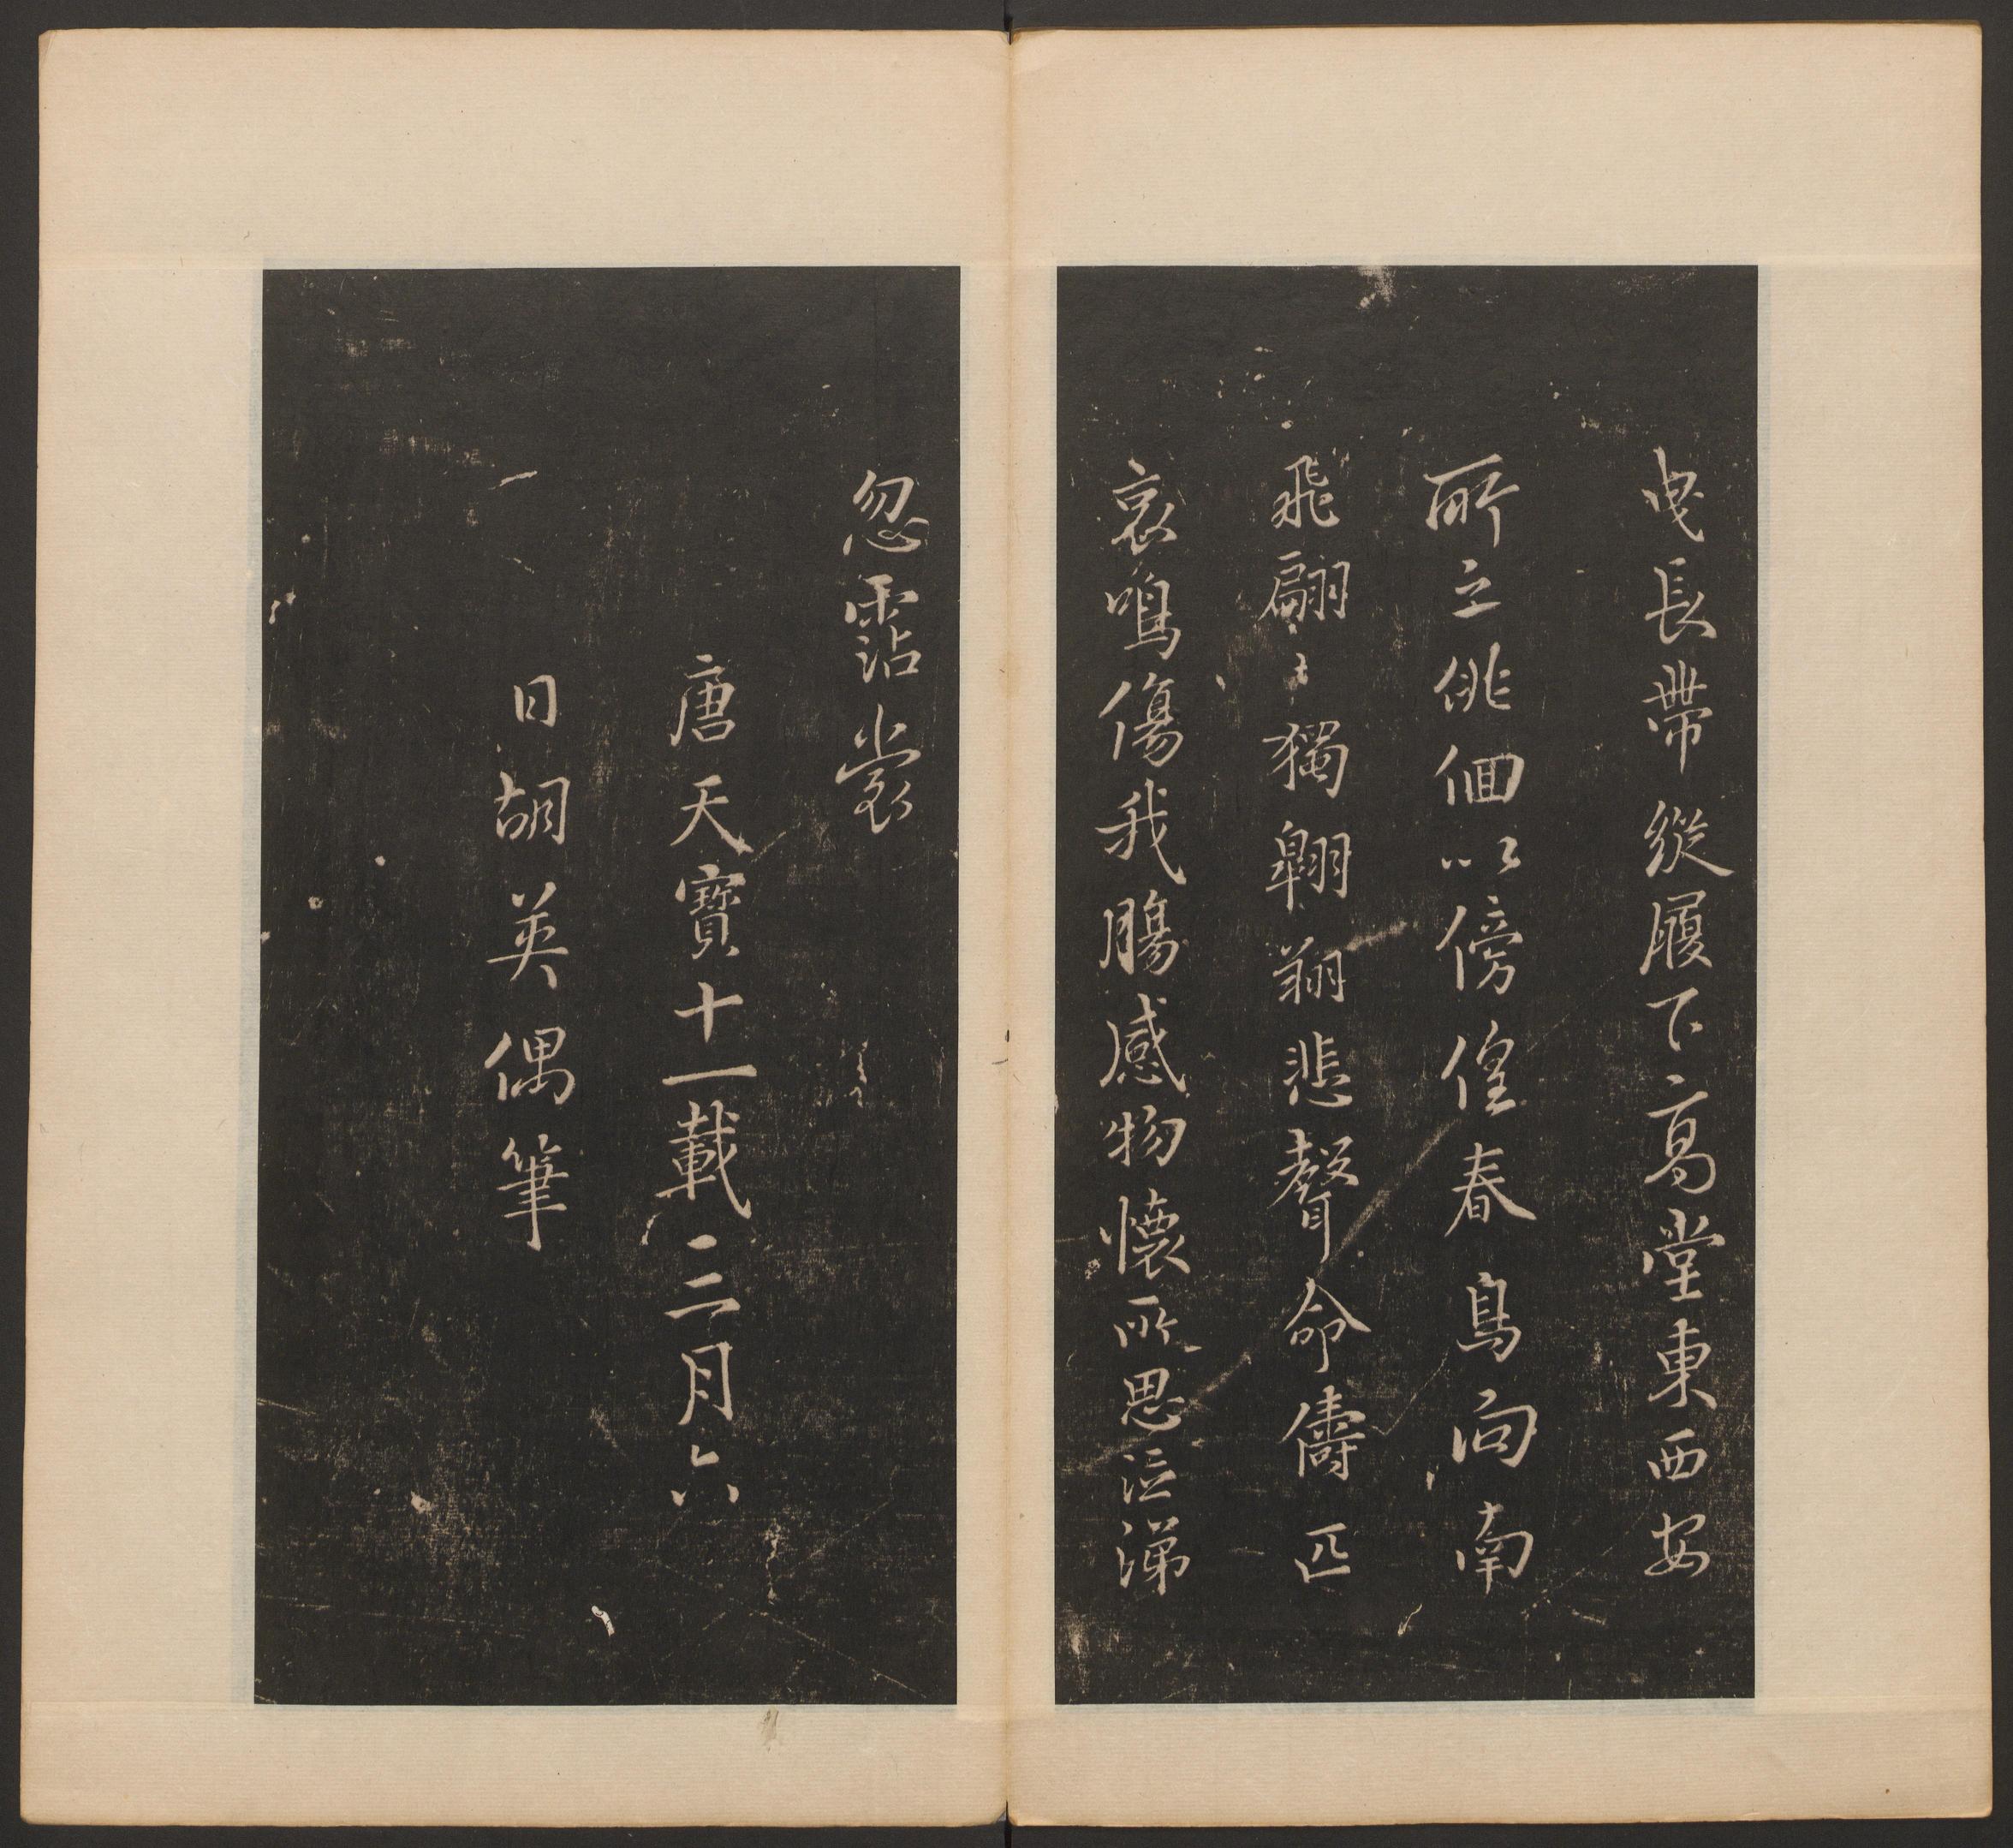 曵長帶縱履下高堂東西安
所之俳佪以傍偟春鳥向南
飛翩〻獨翱翔悲聲命儔匹
哀鳴傷我腸感物懷所思泣涕
忽霑裳
唐天寶十一載二月六
日胡英偶筆